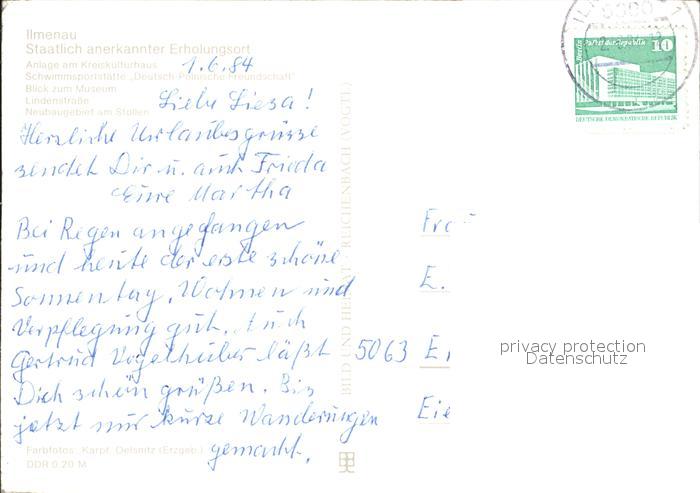 Ilmenau
Staatlich anerkannter Erholungsort
Anlage am Kreiskulturhaus
Schwimmsportstätte „Deutsch-Polnische Freundschaft"
Blick zum Museum
Lindenstraße
Neubaugebiet am Stollen
1.6.84
Liebe Liesa!
Herzliche Urlaubsgrüsse
sendet Dir u. auch Frieda
Eure Martha
Bei Regen angefangen
und heute der erste schöne
Sonnentag. Wohnen und
Verpflegung gut. Auch
Gertrud Vogelhuber läßt
Dich schön grüßen. Bis
jetzt nur kurze Wanderungen
gemacht.
Farbfotos: Karpf, Oelsnitz (Erzgeb.)
DDR 0,20 M
BILD UND HEIMAT REICHENBACH (VOGTL)
Berlin Palast der Republik 10
DEUTSCHE DEMOKRATISCHE REPUBLIK
Fra
E.
5063 E
Eie
privacy protection
Datenschutz